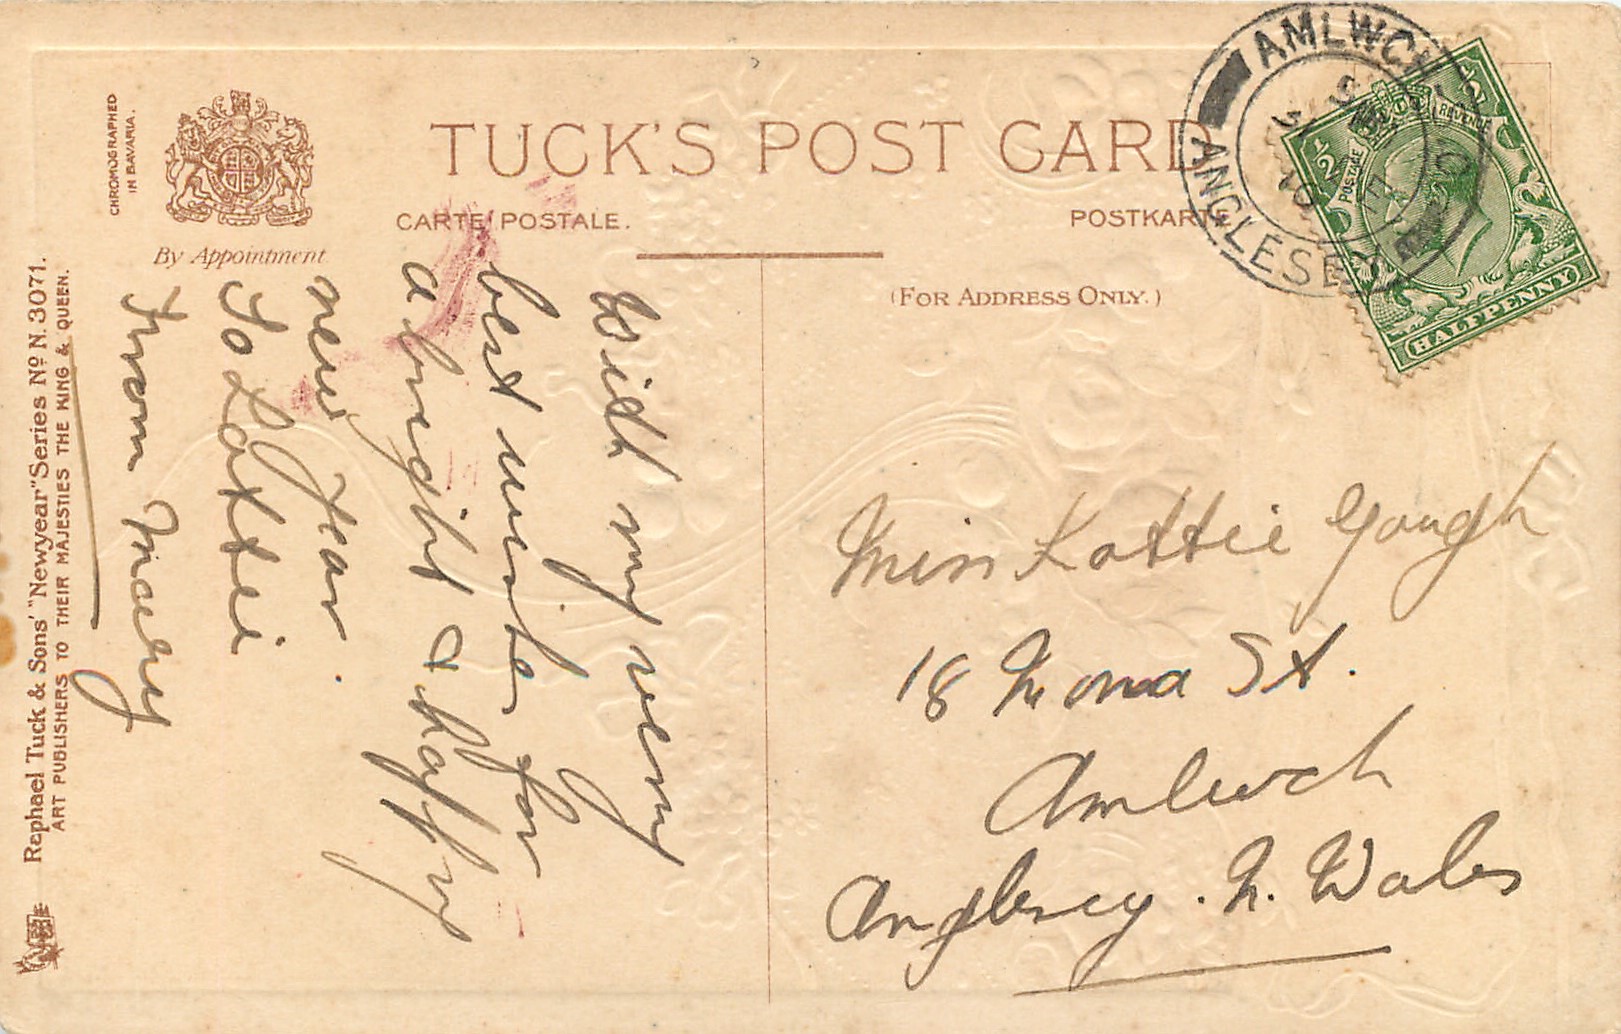 TUCK'S POST CARD
CARTE POSTALE.
POSTKARTE
(FOR ADDRESS ONLY.)
CHROMOGRAPHED
IN BAVARIA.
By Appointment
Raphael Tuck & Sons' "Newyear" Series No N. 3071.
ART PUBLISHERS TO THEIR MAJESTIES THE KING & QUEEN.
With my very
best wishes for
a bright & happy
new Year.
To Lottie
From Macey
Miss Lottie Gough
18 Mona St.
Amlwch
Anglesey. N. Wales
AMLWCH
ANGLESEY
½
½
POSTAGE
REVENUE
HALFPENNY